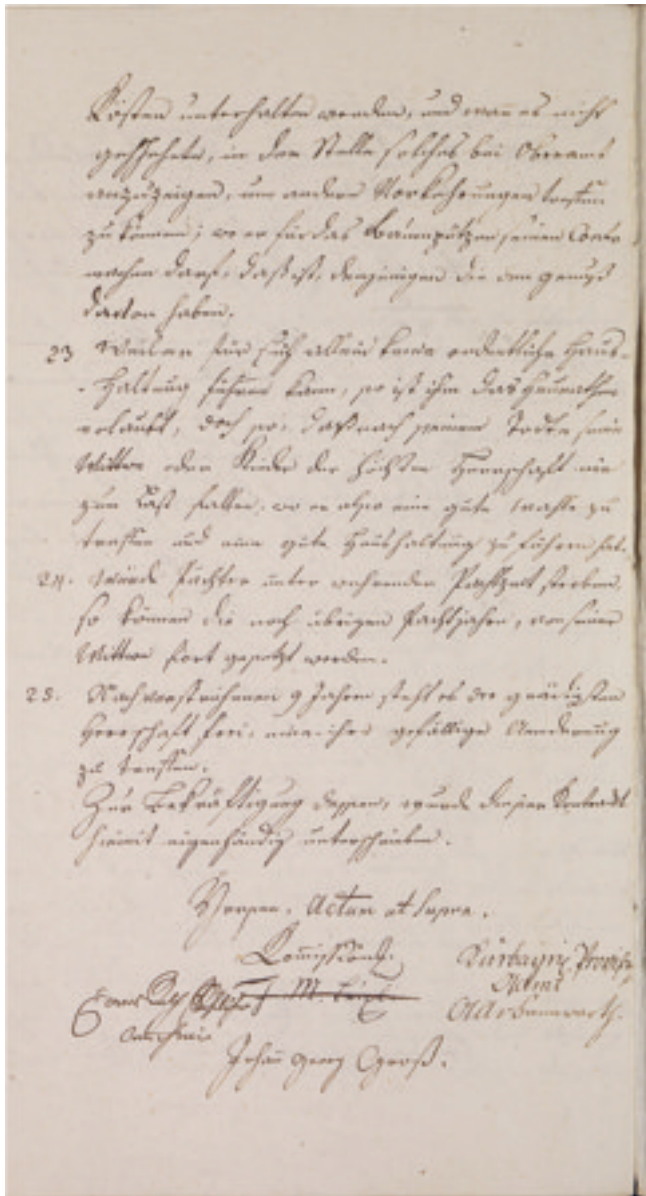 Kösten unterhalten werden, und wann es nicht
geschehete, in der Stelle solches bei Oberamt
anzuzeigen, um andere Vorkehrungen treffen
zu können; wo er für das Baumputzen seinen Conto
machen darf, das ist, denjenigen die den genuß
darvon haben.
23 Weilen er für sich allein keine ordentliche Haus-
haltung führen kann, so ist ihm das Heurathen
erlaubt, doch so, daß nach seinem Todte seine
Wittwe oder Kinder der höchsten Herrschaft nie
zum Last fallen, wo er also eine gute Wahle zu
treffen und eine gute Haushaltung zu führen hat.
24. Würde Pächter unter währender Pachtzeit sterben,
so können die noch übrigen Pachtjahre, von seiner
Wittwe fort gesetzt werden.
25. Nach verstrichenen 9 Jahren steht es der gnädigsten
Herrschaft frei, eine ihr gefällige Aenderung
zu treffen.
Zur Bekräftigung dessen, wurde dieser Contract
hiemit eigenhändig unterschrieben.
Actum ut Supra.
M.
Johann Georg Groß.